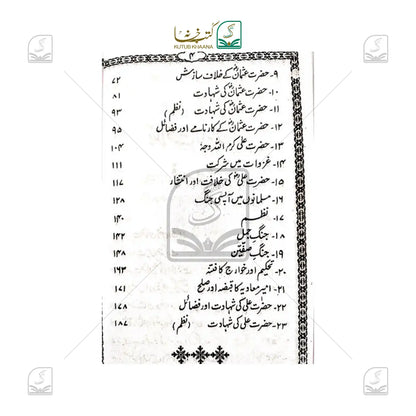 کتب خانہ
KUTUB KHAANA
۴
۹۔ حضرت عثمانؓ کے خلاف سازش ۷۲
۱۰۔ حضرت عثمانؓ کی شہادت ۸۱
۱۱۔ حضرت عثمانؓ کی شہادت (نظم) ۹۳
۱۲۔ حضرت عثمانؓ کے کارنامے اور فضائل ۹۵
۱۳۔ حضرت علی کرم اللہ وجہٗ ۱۰۴
۱۴۔ غزوات میں شرکت ۱۱۱
۱۵۔ حضرت علیؓ کی خلافت اور انتشار ۱۱۷
۱۶۔ مسلمانوں میں آپسی جنگ ۱۲۸
۱۷۔ نظم ۱۴۰
۱۸۔ جنگ جمل ۱۴۲
۱۹۔ جنگ صفین ۱۴۸
۲۰۔ تحکیم اور خوارج کا فتنہ ۱۶۳
۲۱۔ امیر معاویہؓ کا قبضہ اور صلح ۱۷۱
۲۲۔ حضرت علی کی شہادت اور فضائل ۱۷۸
۲۳۔ حضرت علی کی شہادت (نظم) ۱۸۷